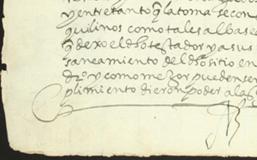 y entretanto q̃ la toma se con
quilinos como tales al base
q̃ dexo el dho testador y a sus
saneamiento del dho sitio en
dro y como mejor pueden ser
plimiento dieron poder a las